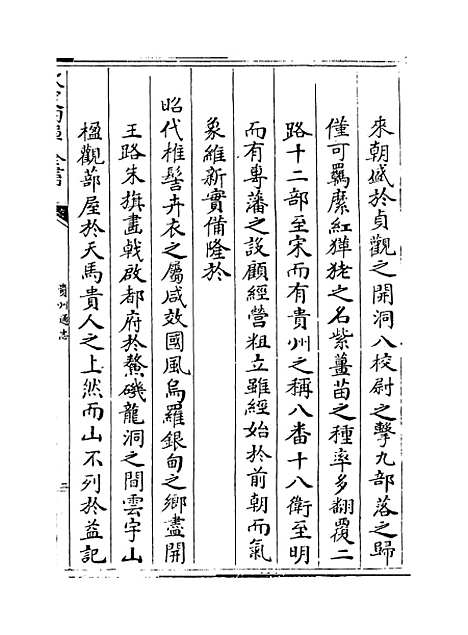 來朝盛於貞觀之開洞八校尉之擊九部落之歸
僅可羈縻紅獚狫之名紫薑苗之種率多翻覆二
路十二部至宋而有貴州之稱八番十八衛至明
而有專藩之設顧經營粗立雖經始於前朝而氣
象維新實備隆於
昭代椎髻卉衣之屬咸效國風烏羅銀甸之鄉盡開
王路朱旗畫戟啟都府於鰲磯龍洞之間雲宇山
楹觀蔀屋於天馬貴人之上然而山不列於益記
貴州通志
二